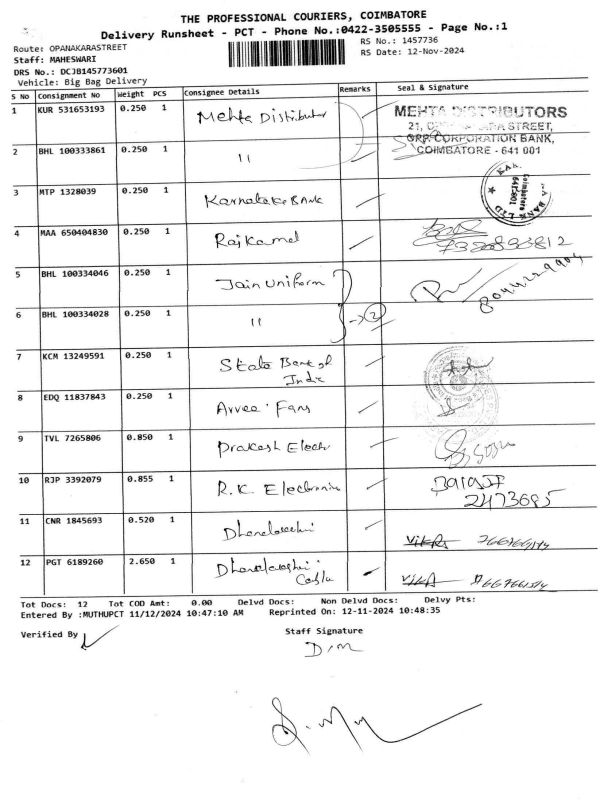 THE PROFESSIONAL COURIERS, COIMBATORE
Delivery Runsheet - PCT - Phone No.:0422-3505555 - Page No.:1
Route: OPANAKARASTREET
RS No.: 1457736
Staff: MAHESWARI
RS Date: 12-Nov-2024
DRS No.: DCJB145773601
Vehicle: Big Bag Delivery
S No Consignment No Weight PCS Consignee Details Remarks Seal & Signature
1 KUR 531653193 0.250 1 Mehta Distributor
MEHTA DISTRIBUTORS
STREET,
CORPORATION BANK,
COIMBATORE - 641 001
2 BHL 100333861 0.250 1 11
3 MTP 1328039 0.250 1 Karnataka Bank
4 MAA 650404830 0.250 1 Rajkamal
5 BHL 100334046 0.250 1 Jain Uniform
6 BHL 100334028 0.250 1 11 → 2
7 KCM 13249591 0.250 1 State Bank of
India
8 EDQ 11837843 0.250 1 Arvee Fans
9 TVL 7265806 0.850 1 Prakash Electr
10 RJP 3392079 0.855 1 R.K. Electronics
BalaJI
2473695
11 CNR 1845693 0.520 1
12 PGT 6189260 2.650 1
Tot Docs: 12 Tot COD Amt: 0.00 Delvd Docs: Non Delvd Docs: Delvy Pts:
Entered By :MUTHUPCT 11/12/2024 10:47:10 AM Reprinted On: 12-11-2024 10:48:35
Verified By
Staff Signature